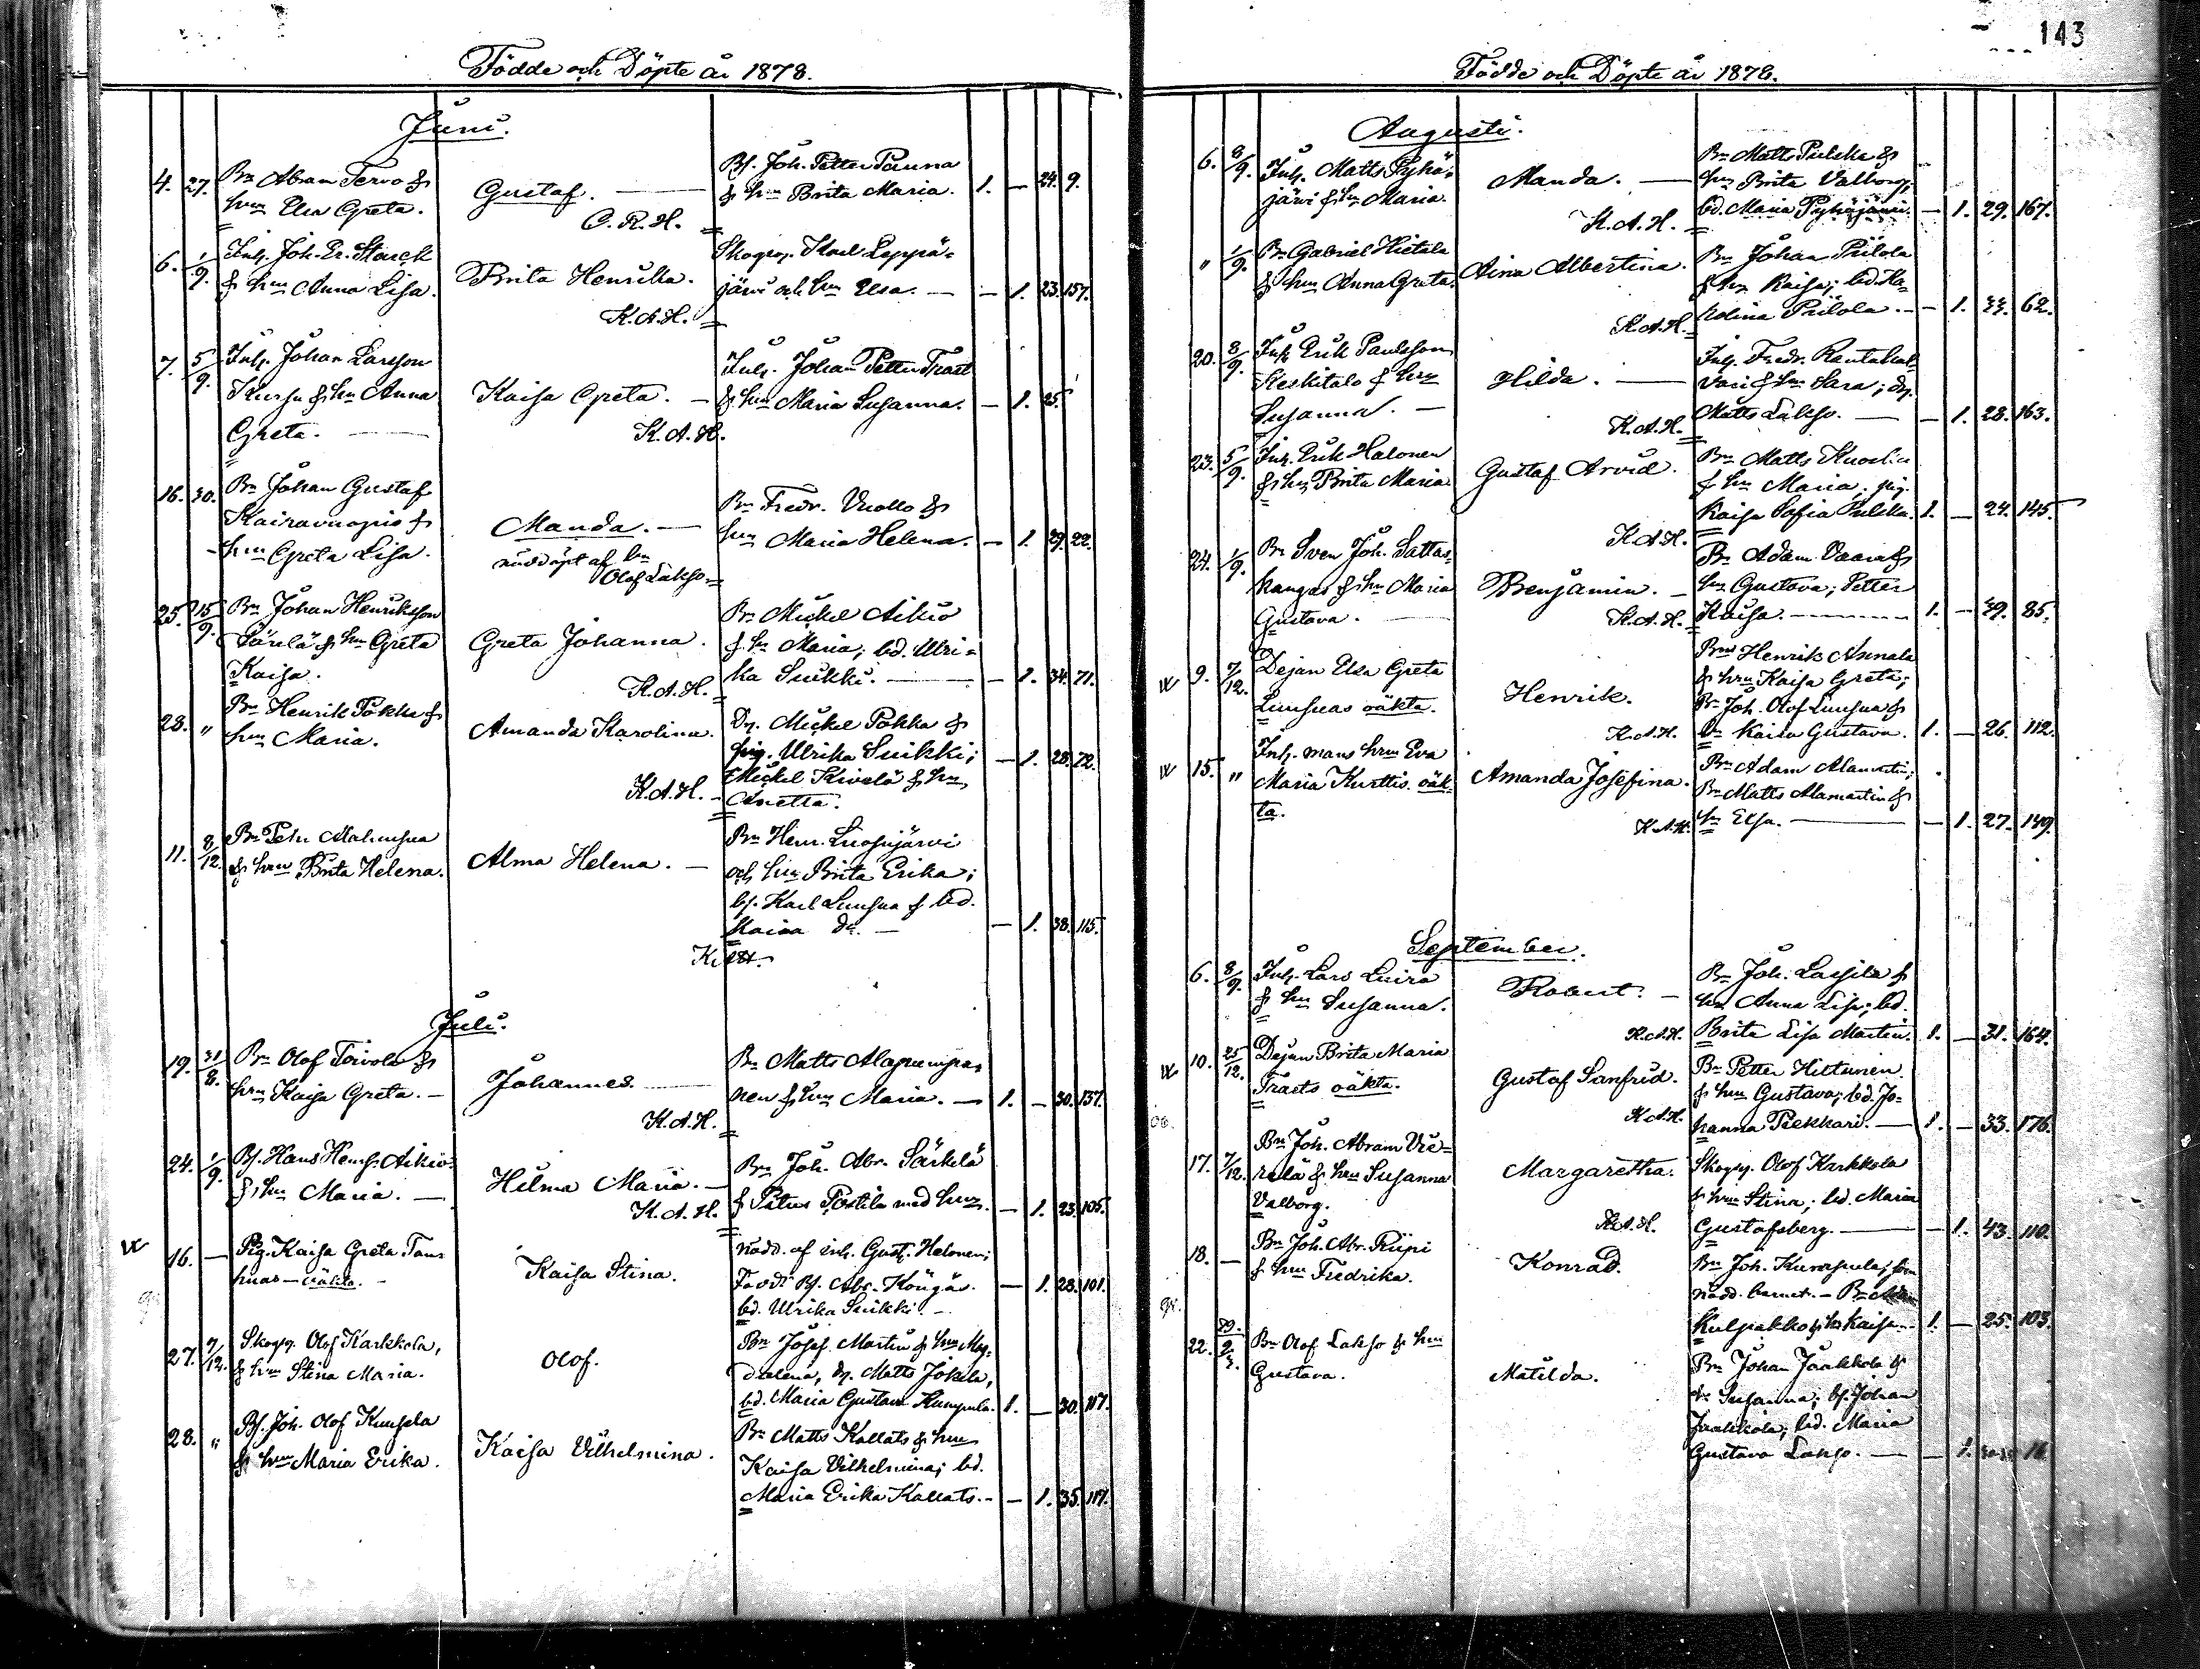 Födde och Döpte år 1878.
Juni.
4. 27. Bn Abram Tervo &
hrn Elsa Greta.
Gustaf. —
C. R. H.
Bs. Joh. Petter Panna
& hn Brita Maria. 1. — 24. 9.
6. 1/9. Inh. Joh. Er. Starck
& hrn Anna Lisa.
Brita Henrika.
K. A. H.
Skogv. Karl Leppä-
järvi och hrn Elsa. — — 1. 23. 157.
7. 5/9. Inh. Johan Larsson
& hn Anna
Greta. —
Kaisa Greta. —
K. A. H.
Inh. Johan Petter Trast
& hrn Maria Susanna. — 1. 25.
16. 30. Bn Johan Gustaf
Kairavuopio &
hrn Greta Lisa.
Manda. —
nöddöpt af bn
Olof Lakso.
Bn Fredr. Vuollo &
hrn Maria Helena. — 1. 29. 22.
25. 15/9. Bn Johan Henriksson
Särelä & hrn Greta
Kaisa.
Greta Johanna.
K. A. H.
Bn Mickel Aikio
& hn Maria; bd. Ulri-
ka Suikki. — — 1. 34. 71.
28. " Bn Henrik Pokka &
hrn Maria.
Amanda Karolina.
K. A. H.
Dr. Mickel Pokka &
pig. Ulrika Suikki;
Mickel Kivelä & hn
Anetta. — 1. 28. 72.
11. 8/12. Bn Petr
& hrn Brita Helena.
Alma Helena. —
Bn Henr. Luosujärvi
och hrn Brita Erika;
bs. Karl Luusua & bd.
Kaisa do. — — 1. 38. 115.
Juli.
19. 31/8. Bn Olof Toivola &
hrn Kaisa Greta. —
Johannes. —
K. A. H.
Bn Matts Alapeura-
nen & hrn Maria. — 1. — 30. 137.
24. 1/9. Bs. Hans Henr. Aikio
& hn Maria. —
Hilma Maria. —
K. A. H.
Bn Joh. Abr. Särkelä
& Petrus Postila med hrn. — 1. 23. 105.
16. — Pig. Kaisa Greta Tan-
huas — oäkta. —
Kaisa Stina.
nödd. af inh. Gust. Halonen;
Bs. Abr. Köngäs.
bd. Ulrika Suikki. — — 1. 28. 101.
27. 7/12. Skogv. Olof Karkkola,
& hrn Stina Maria.
Olof.
Bn Josef Martin & hrn Mag-
dalena, dr. Matts Jokela,
bd. Maria Gustava Kumpula. 1. — 30. 117.
28. " Bs. Joh. Olof Kuusela
& hrn Maria Erika.
Kaisa Vilhelmina.
Bn Matts Kallats & hrn
Kaisa Vilhelmina; bd.
Maria Erika Kallats. — — 1. 35. 117.
143
Födde och Döpte år 1878.
Augusti.
6. 8/9. Inh. Matts Pyhä-
järvi & hn Maria.
Manda. —
K. A. H.
Bn Matts Pulska &
hrn Brita Valborg,
bd. Maria Pyhäjärvi. — 1. 29. 167.
" 1/9. Bn Gabriel Hietala
& hrn Anna Greta.
Aina Albertina.
K. A. H.
Bn Johan Piilola
& hrn Kaisa; bd. Ka-
rolina Piilola. — — 1. 33. 62.
20. 8/9. Inh. Erik Paulsson
Keskitalo & hrn
Susanna. —
Hilda. —
K. A. H.
Inh. Fredr. Rautakal-
& hn Sara; dr.
Matts Lakso. — — 1. 28. 163.
23. 5/9. Inh. Erik Halonen
& hrn Brita Maria
Gustaf Arvid.
K. A. H.
Bn Matts
& hrn Maria, pig.
Kaisa Sofia Pulska. 1. — 24. 145.
24. 1/9. Bn Sven Joh. Sattas-
kangas & hn Maria
Gustava.
Benjamin. —
K. A. H.
Bn Adam Vaara &
hrn Gustava; Petter
Kaisa. — 1. — 39. 85.
9. 7/12. Dejan Elsa Greta
Luusuas oäkta.
Henrik.
K. A. H.
Bn Henrik Annala
& hrn Kaisa Greta;
Bn Joh. Olof Luusua &
Dr Kaisa Gustava. 1. — 26. 112.
15. " Inh. mans hrn Eva
Maria Kurttis oäk-
ta.
Amanda Josefina.
K. A. H.
Bn Adam Alamartin;
Bn Matts Alamartin &
hn Elsa. — — 1. 27. 149.
September.
6. 8/9. Inh. Lars Luiro
& hrn Susanna.
Robert. —
K. A. H.
Bn Joh. Lassila &
hrn Anna Lisa; bd.
Brita Lisa Martin. 1. — 31. 164.
10. 25/12. Dejan Brita Maria
Trasts oäkta.
Gustaf Sanfrid.
K. A. H.
Bn Petter Hiltunen
& hrn Gustava; bd. Jo-
hanna Piekkari. — 1. — 33. 176.
17. 7/12. Bn Joh. Abram Vie-
relä & hrn Susanna
Valborg.
Margaretha.
K. A. H.
Skogv. Olof Karkkola
& hrn Stina; bd. Maria
Gustafsberg. — — 1. 43. 110.
18. — Bn Joh. Abr. Riipi
& hrn Fredrika.
Konrad.
Bn Joh. Kumpula; som
nödd. barnet. — Bn
Kulpakko & hn Kaisa. 1. — 25. 103.
22. Bn Olof Lakso & hrn
Gustava.
Matilda.
Bn Johan Jaakkola &
hn Susanna; bs. Johan
Jaakkola; bd. Maria
Gustava Lakso. — — 1.